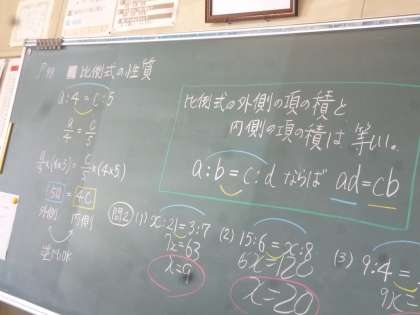 比例式の性質
a:4=c:5
a/4=c/5
a/4×(4×5)=c/5×(4×5)
5a=4c
外側 内側
比例式の外側の項の積と
内側の項の積は等しい。
a:b=c:d ならば ad=cb
問2 (1) x:21=3:7
7x=63
x=9
(2) 15:6=x:8
6x=120
x=20
(3) 9:4=
9x=